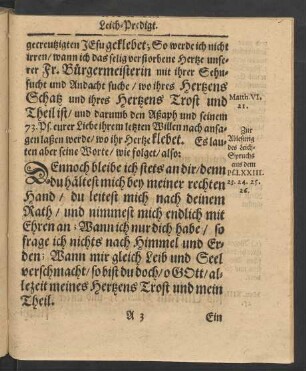 Leich-Predigt.
gecreutzigten JEsu geklebet; So werde ich nicht
irren / wann ich das selig verstorbene Hertze unse-
rer Fr. Bürgermeisterin mit ihrer Sehn-
sucht und Andacht suche / wo ihres Hertzens
Schatz und ihres Hertzens Trost und
Theil ist / und darumb den Assaph und seinem
73. Ps. eurer Liebe ihrem letzten Willen nach ansa-
gen laßen werde / wo ihr Hertz klebet. Es lau-
ten aber seine Worte / wie folget / also:
Matth. VI.
21.
Zur
Ablesung
des Leich-
Spruchs
aus dem
Ps. LXXIII.
23. 24. 25.
26.
Dennoch bleibe ich stets an dir / denn
du hältest mich bey meiner rechten
Hand / du leitest mich nach deinem
Rath / und nimmest mich endlich mit
Ehren an: Wann ich nur dich habe / so
frage ich nichts nach Himmel und Er-
den: Wann mir gleich Leib und Seel
verschmacht / so bist du doch / o GOtt / al-
lezeit meines Hertzens Trost und mein
Theil.
A 3
Ein